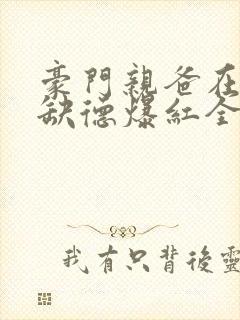 豪門親爸在
缺德爆紅全
我有只背後靈